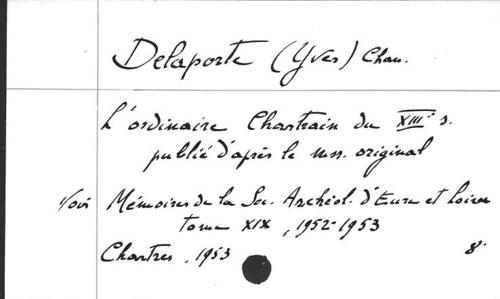 Delaporte (Yves) Chan.
L'ordinaire Chartrain du XIIIe s.
publié d'après le mss. original
Voir Mémoires de la Soc. Archéol. d'Eure et Loire
tome XIX, 1952-1953
Chartres, 1953 8°